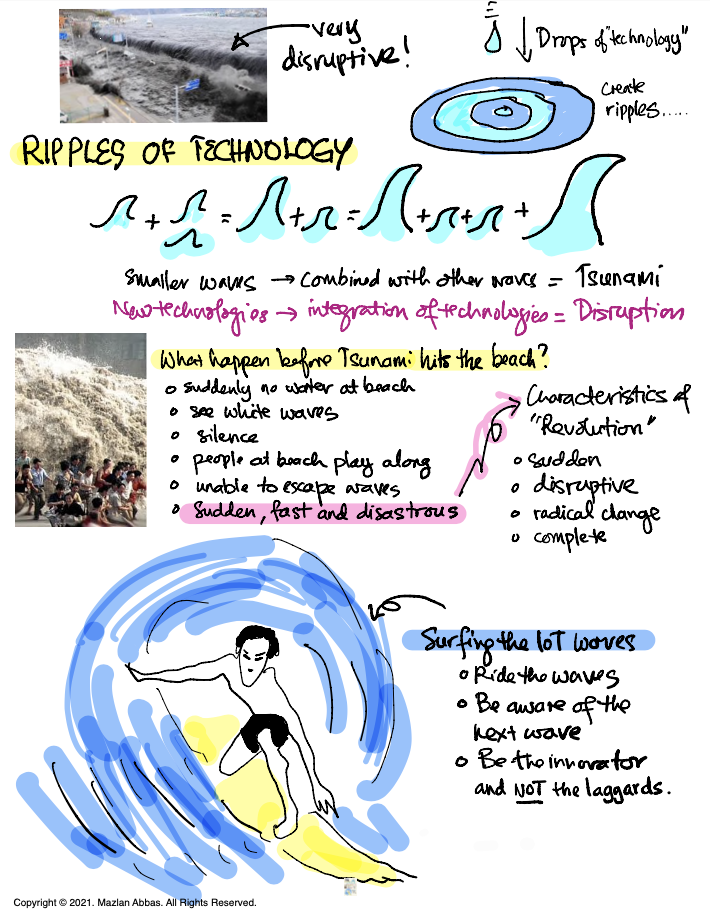 very
disruptive!
Drops of "technology"
Create
ripples.....
RIPPLES OF TECHNOLOGY
+ = + = + + +
smaller waves → Combined with other waves = Tsunami
New technologies → integration of technologies = Disruption
What happen before Tsunami hits the beach?
o suddenly no water at beach
o see white waves
o silence
o people at beach play along
o unable to escape waves
o Sudden, fast and disastrous
Characteristics of
"Revolution"
o sudden
o disruptive
o radical change
o complete
Surfing the IoT waves
o Ride the waves
o Be aware of the
next wave
o Be the innovator
and NOT the laggards.
Copyright © 2021. Mazlan Abbas. All Rights Reserved.